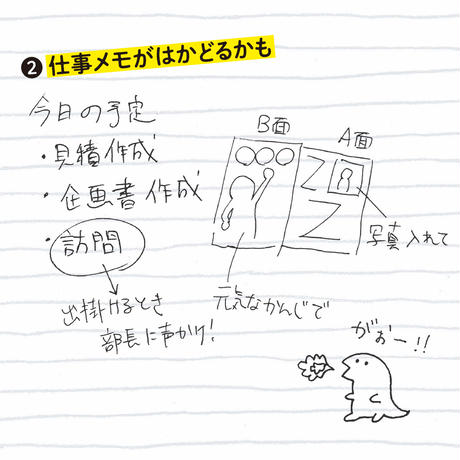 ❷ 仕事メモがはかどるかも
今日の予定
・見積作成
・企画書作成
・訪問
出掛けるとき
部長に声かけ!
B面
A面
写真入れて
元気なかんじで
がおー!!